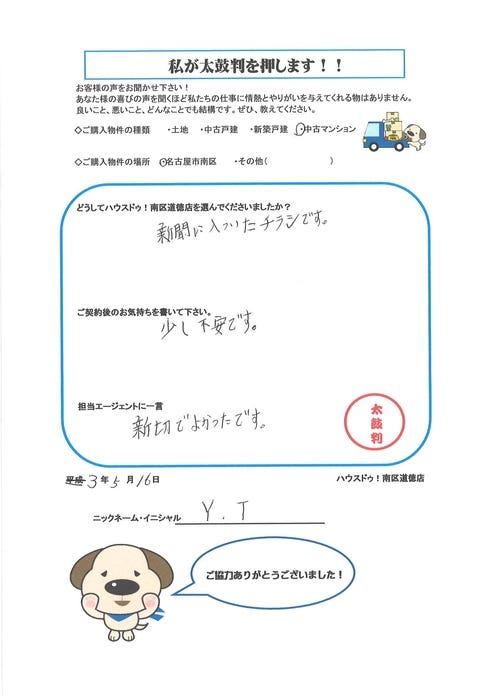 私が太鼓判を押します！！
お客様の声をお聞かせ下さい！
あなた様の喜びの声を聞くほど私たちの仕事に情熱とやりがいを与えてくれる物はありません。
良いこと、悪いこと、どんなことでも結構です。ぜひ、教えてください。
◇ご購入物件の種類 ・土地 ・中古戸建 ・新築戸建 ・中古マンション
◇ご購入物件の場所 ・名古屋市南区 ・その他( )
どうしてハウスドゥ！南区道徳店を選んでくださいましたか？
新聞に入っいたチラシです。
ご契約後のお気持ちを書いて下さい。
少し不安です。
担当エージェントに一言
新切でよかったです。
太鼓判
平成 3年 5月 16日
ハウスドゥ！南区道徳店
ニックネーム・イニシャル Y.T
ご協力ありがとうございました！